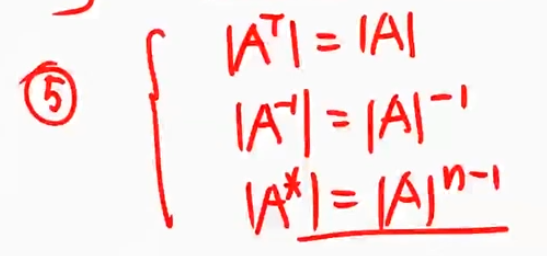 ⑤ |Aᵀ| = |A|
|A⁻¹| = |A|⁻¹
|A*| = |A|ⁿ⁻¹